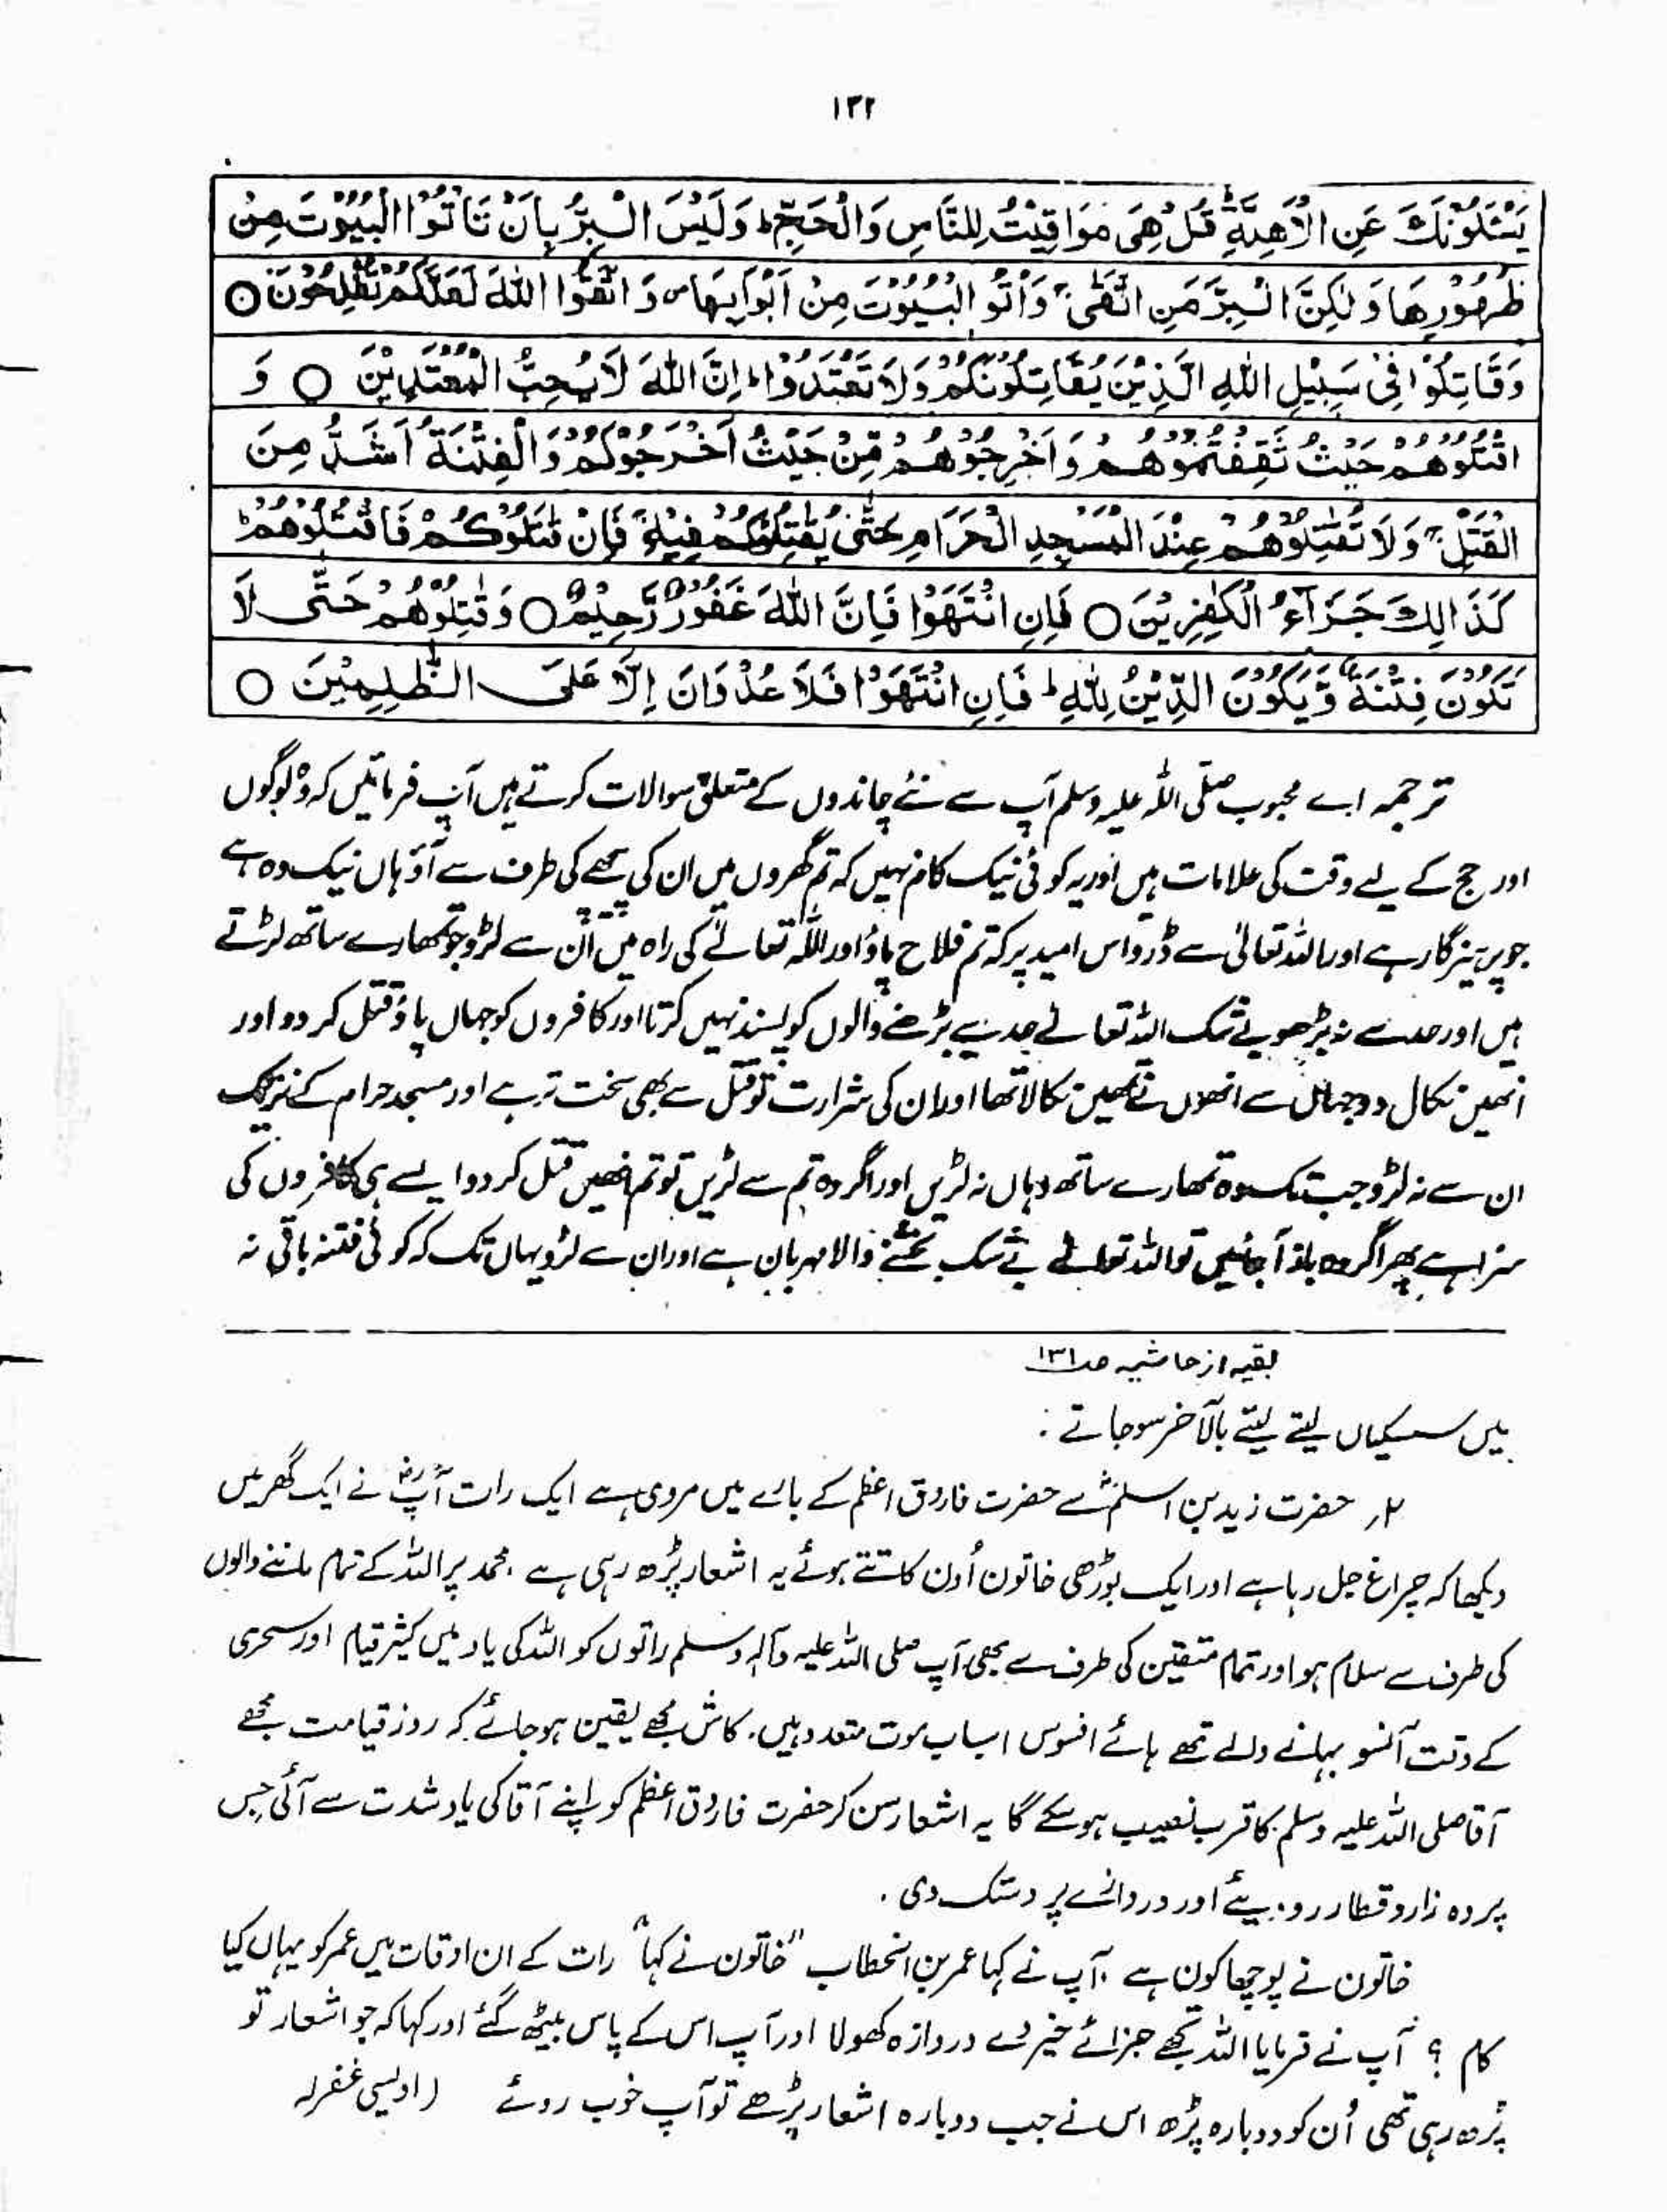 ۱۳۲
يَسْئَلُوْنَكَ عَنِ الْاَهِلَّةِؕ قُلْ هِىَ مَوَاقِيْتُ لِلنَّاسِ وَالْحَجِّؕ وَلَيْسَ الْبِرُّ بِاَنْ تَاْتُوا الْبُيُوْتَ مِنْ
ظُهُوْرِهَا وَلٰكِنَّ الْبِرَّ مَنِ اتَّقٰىۚ وَاْتُوا الْبُيُوْتَ مِنْ اَبْوَابِهَا وَاتَّقُوا اللّٰهَ لَعَلَّكُمْ تُفْلِحُوْنَ ○
وَقَاتِلُوْا فِىْ سَبِيْلِ اللّٰهِ الَّذِيْنَ يُقَاتِلُوْنَكُمْ وَلَا تَعْتَدُوْاؕ اِنَّ اللّٰهَ لَا يُحِبُّ الْمُعْتَدِيْنَ ○ وَ
اقْتُلُوْهُمْ حَيْثُ ثَقِفْتُمُوْهُمْ وَاَخْرِجُوْهُمْ مِّنْ حَيْثُ اَخْرَجُوْكُمْ وَالْفِتْنَةُ اَشَدُّ مِنَ
الْقَتْلِۚ وَلَا تُقٰتِلُوْهُمْ عِنْدَ الْمَسْجِدِ الْحَرَامِ حَتّٰى يُقٰتِلُوْكُمْ فِيْهِۚ فَاِنْ قٰتَلُوْكُمْ فَاقْتُلُوْهُمْؕ
كَذَالِكَ جَزَآءُ الْكٰفِرِيْنَ ○ فَاِنِ انْتَهَوْا فَاِنَّ اللّٰهَ غَفُوْرٌ رَّحِيْمٌ ○ وَقٰتِلُوْهُمْ حَتّٰى لَا
تَكُوْنَ فِتْنَةٌ وَّيَكُوْنَ الدِّيْنُ لِلّٰهِؕ فَاِنِ انْتَهَوْا فَلَا عُدْوَانَ اِلَّا عَلَى الظّٰلِمِيْنَ ○
ترجمہ اے محبوب صلّی اللہ علیہ وسلم آپ سے نئے چاندوں کے متعلق سوالات کرتے ہیں آپ فرمائیں کہ وہ لوگوں
اور حج کے لیے وقت کی علامات ہیں اور یہ کوئی نیک کام نہیں کہ تم گھروں میں ان کی پیچھے کی طرف سے آؤ ہاں نیک وہ ہے
جو پرہیزگار ہے اور اللہ تعالیٰ سے ڈرو اس امید پر کہ تم فلاح پاؤ اور اللہ تعالےٰ کی راہ میں اُن سے لڑو جو تمھارے ساتھ لڑتے
ہیں اور حد سے نہ بڑھو بے شک اللہ تعالےٰ حد سے بڑھنے والوں کو پسند نہیں کرتا اور کافروں کو جہاں پاؤ قتل کر دو اور
انھیں نکال دو جہاں سے انھوں نے تمھیں نکالا تھا اور ان کی شرارت تو قتل سے بھی سخت تر ہے اور مسجد حرام کے نزدیک
ان سے نہ لڑو جب تک وہ تمھارے ساتھ وہاں نہ لڑیں اور اگر وہ تم سے لڑیں تو تم انھیں قتل کر دو ایسے ہی کافروں کی
سزا ہے پھر اگر وہ باز آ جائیں تو اللہ تعالےٰ بے شک بخشنے والا مہربان ہے اور ان سے لڑو یہاں تک کہ کوئی فتنہ باقی نہ
بقیہ از حاشیہ صـ۱۳۱
میں سسکیاں لیتے لیتے بالآخر سو جاتے :
۲, حضرت زید بن اسلمؓ سے حضرت فاروق اعظم کے بارے میں مروی ہے ایک رات آپؓ نے ایک گھر میں
دیکھا کہ چراغ جل رہا ہے اور ایک بوڑھی خاتون اُون کاتتے ہوئے یہ اشعار پڑھ رہی ہے . محمد پر اللہ کے تمام ماننے والوں
کی طرف سے سلام ہو اور تمام متقین کی طرف سے بھی آپ صلی اللہ علیہ وآلہ وسلم راتوں کو اللہ کی یاد میں کثیر قیام اور سحری
کے وقت آنسو بہانے والے تھے ہائے افسوس اسباب موت متعدد ہیں. کاش مجھے یقین ہو جائے کہ روز قیامت مجھے
آقا صلی اللہ علیہ وسلم کا قرب نصیب ہو سکے گا یہ اشعار سن کر حضرت فاروق اعظم کو اپنے آقا کی یاد شدت سے آئی جس
پر وہ زار و قطار رو پئے اور دروازے پر دستک دی .
خاتون نے پوچھا کون ہے . آپ نے کہا عمر بن الخطاب "خاتون نے کہا" رات کے ان اوقات میں عمر کو یہاں کیا
کام ؟ آپ نے فرمایا اللہ تجھے جزائے خیر دے دروازہ کھولا اور آپ اس کے پاس بیٹھ گئے اور کہا کہ جو اشعار تو
پڑھ رہی تھی اُن کو دوبارہ پڑھ اس نے جب دوبارہ اشعار پڑھے تو آپ خوب روئے (اویسی غفرلہ